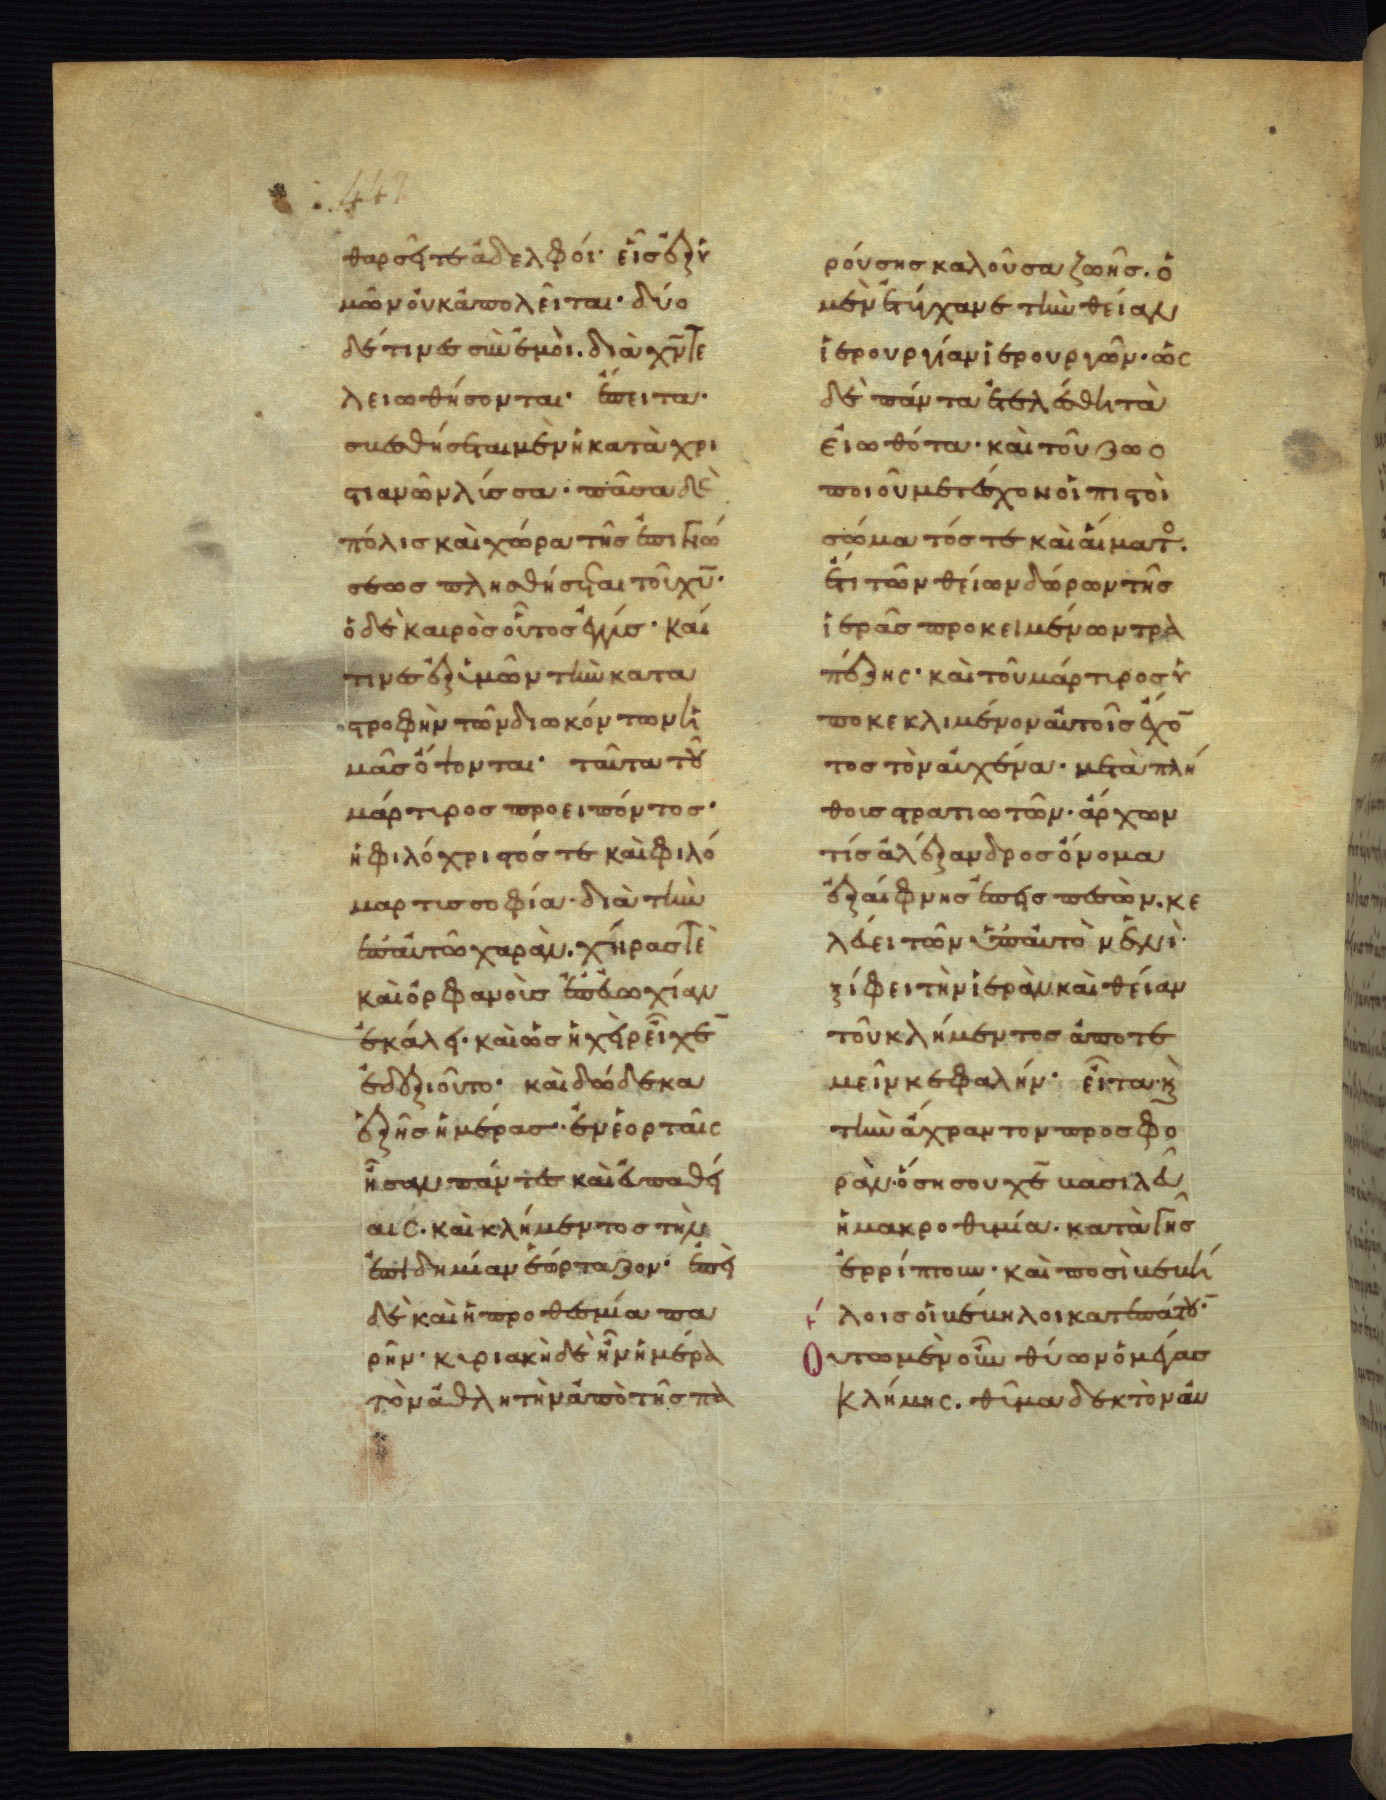 447
θαρσεῖτε ἀδελφοί· εἷς ἐξ ὑ
μῶν οὐκ ἀπολεῖται· δύο
δέ τινες σὺν ἐμοὶ. διὰ χ̅ν̅ τε
λειωθήσονται· ἔπειτα·
σβεσθήσεται μὲν ἡ κατὰ χρι
στιανῶν λύσσα· πᾶσα δὲ
πόλις καὶ χώρα τῆς ἐπιγνώ
σεως πλησθήσεται τοῦ χ̅υ̅·
ὁ δὲ καιρὸς οὗτος ἐγγύς· καί
τινες ἐξ ὑμῶν τὴν κατα
στροφὴν τῶν διωκόντων ἡ
μᾶς ὄψονται· ταῦτα τοῦ
μάρτυρος προειπόντος·
ἡ φιλόχριστός τε καὶ φιλό
μαρτις σοφία· διὰ τὴν
ἐπ αὐτῶ χαρὰν. χήρας τὲ
καὶ ὀρφανοὺς ἐπ εὐωχίαν
ἐκάλει· καὶ ὡς ἡ χεὶρ εἶχε
ἐδεξιοῦτο· καὶ δώδεκα
ἑξῆς ἡμέρας· ἐν ἑορταῖς
ἦσαν πάντες καὶ εὐπαθεί
αις. καὶ κλήμεντος τὴν
ἐπιδημίαν ἑώρταζον· ἐπεὶ
δὲ καὶ ἡ προθεσμία πα
ρῆν· κυριακὴ δὲ ἦν ἡμέρα
τὸν ἀθλητὴν ἀπὸ τῆς πα
ρούσης καλοῦσα ζωῆς. ὁ
μὲν ἐτύχανε τὴν θείαν
ἱερουργίαν ἱερουργῶν· ὡς
δὲ πάντα ἐτελέσθη τὰ
εἰωθότα· καὶ τοῦ ζωο
ποιοῦ μετέσχον οἱ πιστοὶ
σώματός τε καὶ αἵματος.
ἔτι τῶν θείων δώρων τῆς
ἱερᾶς προκειμένων τρα
πέζης· καὶ τοῦ μάρτιρος ὑ
ποκεκλιμένον αὐτοῖς ἔχο̅
τος τὸν αὐχένα· μετὰ πλή
θους στρατιωτῶν· ἄρχων
τίς ἀλέξανδρος ὄνομα
ἐξαίφνης ἐπεισπεσὼν. κε
λεύει τῶν ὑπ αὐτὸν ἑνὶ·
ξίφει τὴν ἱερὰν καὶ θείαν
τοῦ κλήμεντος ἀποτε
μεῖν κεφαλήν· εἶτα κ̀
τὴν ἄχραντον προσφο
ράν· ὅση σου χ̅ε̅ βασιλεῦ
ἡ μακροθυμία. κατὰ γῆς
ἐρρίπτουν· καὶ ποσὶ βεβή
λοις οἱ βέβηλοι κατεπάτου̅·
Οὕτω μὲν οὖν θύων ὁ μέγας
κλήμης. θῦμα δεκτὸν ἀν